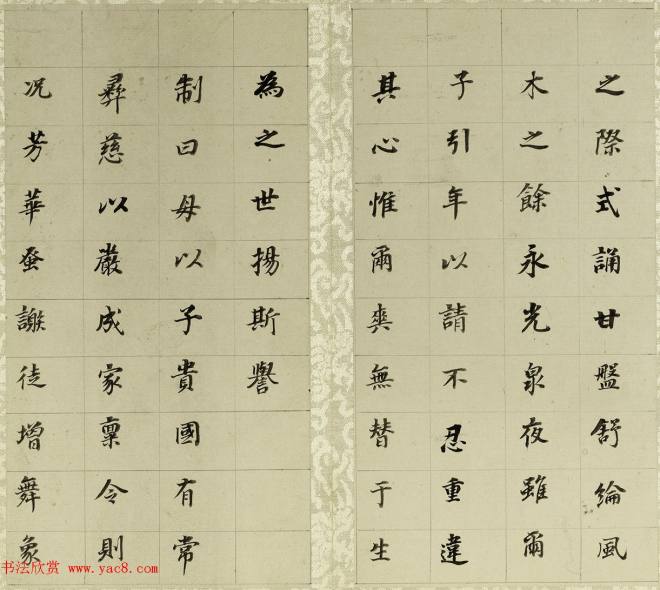 之際式誦甘盤舒綸風
木之餘永光泉夜雖爾
子引年以請不忍重違
其心惟爾爽無替于生
為之世揚斯譽
制曰母以子貴國有常
彛慈以嚴成家稟令則
况芳華蚤謝徒增舞象
书法欣赏 www.yac8.com